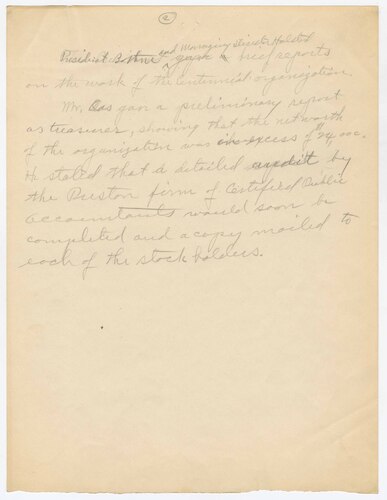 2
and Managing Director Holsted
President gave brief reports
on the work of the Centennial organization.
Mr. gave a preliminary report
as treasurer, showing that the net worth
of the organization was in excess of $74,000.
He stated that a detailed audit by
the Preston firm of Certified Public
Accountants would soon be
completed and a copy mailed to
each of the stock holders.